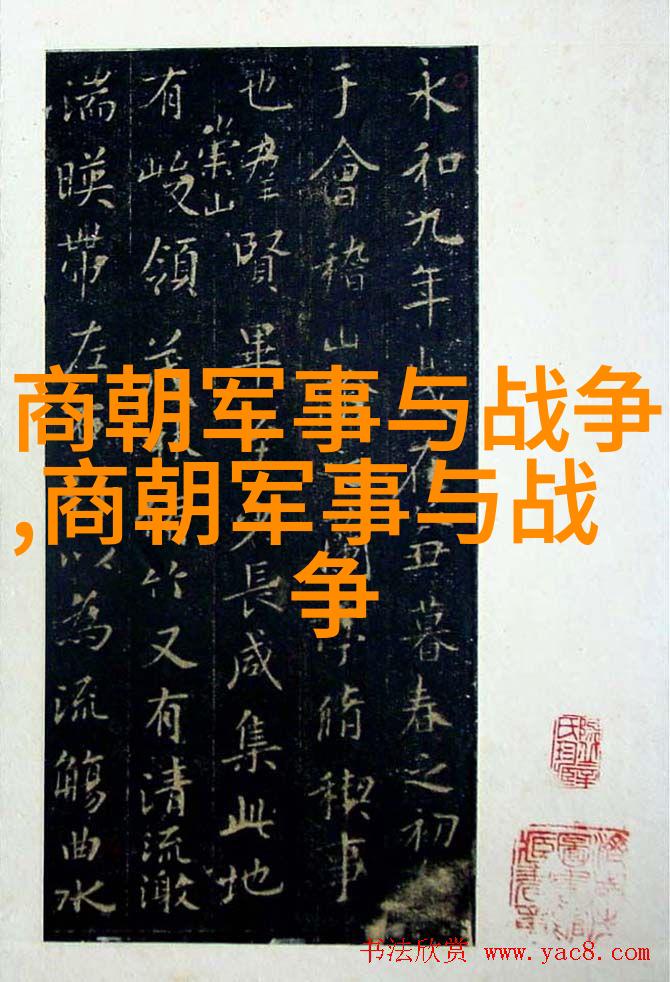 商朝军事与战争
,商朝军事与战
争
永和九年在丑暮春之初
于會稽山亭脩稧事
也羣賢畢長咸集此地
有崇山峻領茂林竹又有清流激
湍暎帶左以為流觴曲水
书法欣赏 www.yac8.com